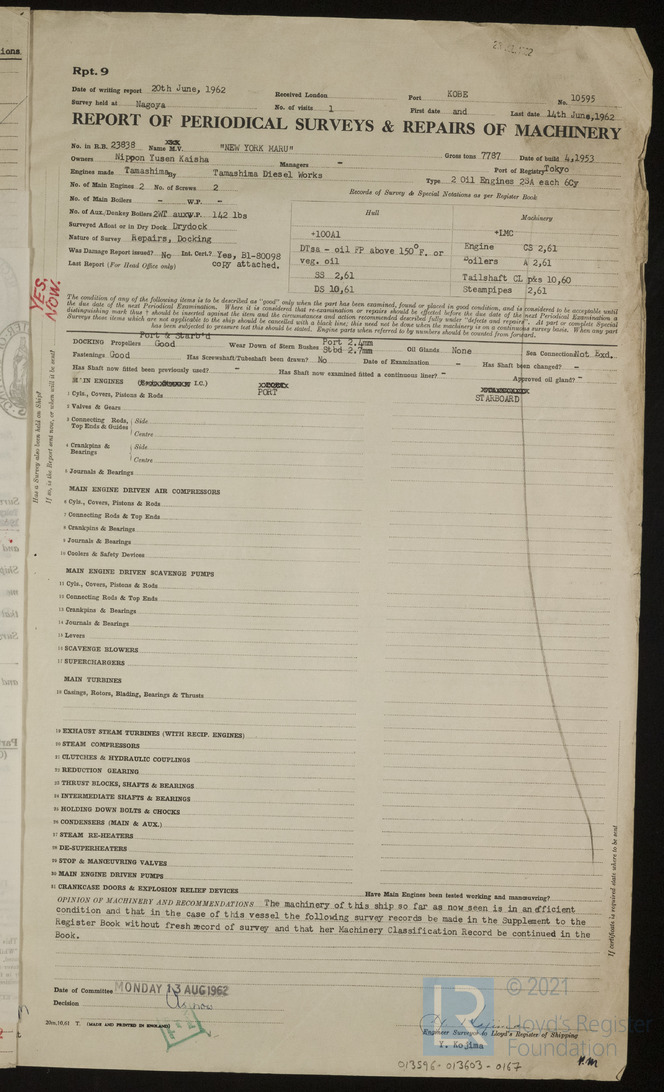 ions
Rpt. 9
Date of writing report 20th June, 1962 Received London Port KOBE No. 10595
Survey held at Nagoya No. of visits 1 First date and Last date 14th June, 1962
REPORT OF PERIODICAL SURVEYS & REPAIRS OF MACHINERY
No. in R.B. 23838 Name M.V. "NEW YORK MARU" Gross tons 7787 Date of build 4,1953
Owners Nippon Yusen Kaisha Managers - Port of Registry Tokyo
Engines made Tamashima By Tamashima Diesel Works Type 2 Oil Engines 2SA each 6Cy
No. of Main Engines 2 No. of Screws 2 Records of Survey & Special Notations as per Register Book
No. of Main Boilers - W.P. -
No. of Aux./Donkey Boilers 2WT aux W.P. 142 lbs Hull Machinery
Surveyed Afloat or in Dry Dock Drydock +100A1 +LMC
Nature of Survey Repairs, Docking DTsa - oil FP above 150°F. or veg. oil Engine CS 2,61
Was Damage Report issued? No Int. Cert.? Yes, B1-80098 copy attached. Boilers A 2,61
Last Report (For Head Office only) SS 2,61 Tailshaft CL p&s 10,60
DS 10,61 Steampipes 2,61
YES. NOW.
Has a Survey also been held on Ship?
If so, is the Report sent now, or when will it be sent?
The condition of any of the following items is to be described as "good" only when the part has been examined, found or placed in good condition, and is considered to be acceptable until
the due date of the next Periodical Examination. Where it is considered that re-examination or repairs should be effected before the due date of the next Periodical Examination a
distinguishing mark thus † should be inserted against the item and the circumstances and action recommended described fully under "defects and repairs". At part or complete Special
Surveys those items which are not applicable to the ship should be cancelled with a black line; this need not be done when the machinery is on a continuous survey basis. When any part
has been subjected to pressure test this should be stated. Engine parts when referred to by numbers should be counted from forward.
Port & Starb'd
DOCKING Propellers Good Wear Down of Stern Bushes Port 2.4mm Stbd 2.7mm Oil Glands None Sea Connections Not Exd.
Fastenings Good Has Screwshaft/Tubeshaft been drawn? No Date of Examination - Has Shaft been changed? -
Has Shaft now fitted been previously used? - Has Shaft now examined fitted a continuous liner? - Approved oil gland? -
MAIN ENGINES I.C.) PORT STARBOARD
1 Cyls., Covers, Pistons & Rods
2 Valves & Gears
3 Connecting Rods, Top Ends & Guides Side
Centre
4 Crankpins & Bearings Side
Centre
5 Journals & Bearings
MAIN ENGINE DRIVEN AIR COMPRESSORS
6 Cyls., Covers, Pistons & Rods
7 Connecting Rods & Top Ends
8 Crankpins & Bearings
9 Journals & Bearings
10 Coolers & Safety Devices
MAIN ENGINE DRIVEN SCAVENGE PUMPS
11 Cyls., Covers, Pistons & Rods
12 Connecting Rods & Top Ends
13 Crankpins & Bearings
14 Journals & Bearings
15 Levers
16 SCAVENGE BLOWERS
17 SUPERCHARGERS
MAIN TURBINES
18 Casings, Rotors, Blading, Bearings & Thrusts
19 EXHAUST STEAM TURBINES (WITH RECIP. ENGINES)
20 STEAM COMPRESSORS
21 CLUTCHES & HYDRAULIC COUPLINGS
22 REDUCTION GEARING
23 THRUST BLOCKS, SHAFTS & BEARINGS
24 INTERMEDIATE SHAFTS & BEARINGS
25 HOLDING DOWN BOLTS & CHOCKS
26 CONDENSERS (MAIN & AUX.)
27 STEAM RE-HEATERS
28 DE-SUPERHEATERS
29 STOP & MANŒUVRING VALVES
30 MAIN ENGINE DRIVEN PUMPS
31 CRANKCASE DOORS & EXPLOSION RELIEF DEVICES
Have Main Engines been tested working and manœuvring?
If certificate is required state where to be sent
OPINION OF MACHINERY AND RECOMMENDATIONS The machinery of this ship so far as now seen is in an efficient
condition and that in the case of this vessel the following survey records be made in the Supplement to the
Register Book without fresh record of survey and that her Machinery Classification Record be continued in the
Book.
Date of Committee MONDAY 13 AUG 1962
Decision
20m,10,61 T. (MADE AND PRINTED IN ENGLAND)
Engineer Surveyor to Lloyd's Register of Shipping
Y. Kojima
LR
© 2021
Lloyd's Register
Foundation
013596-013603-0167